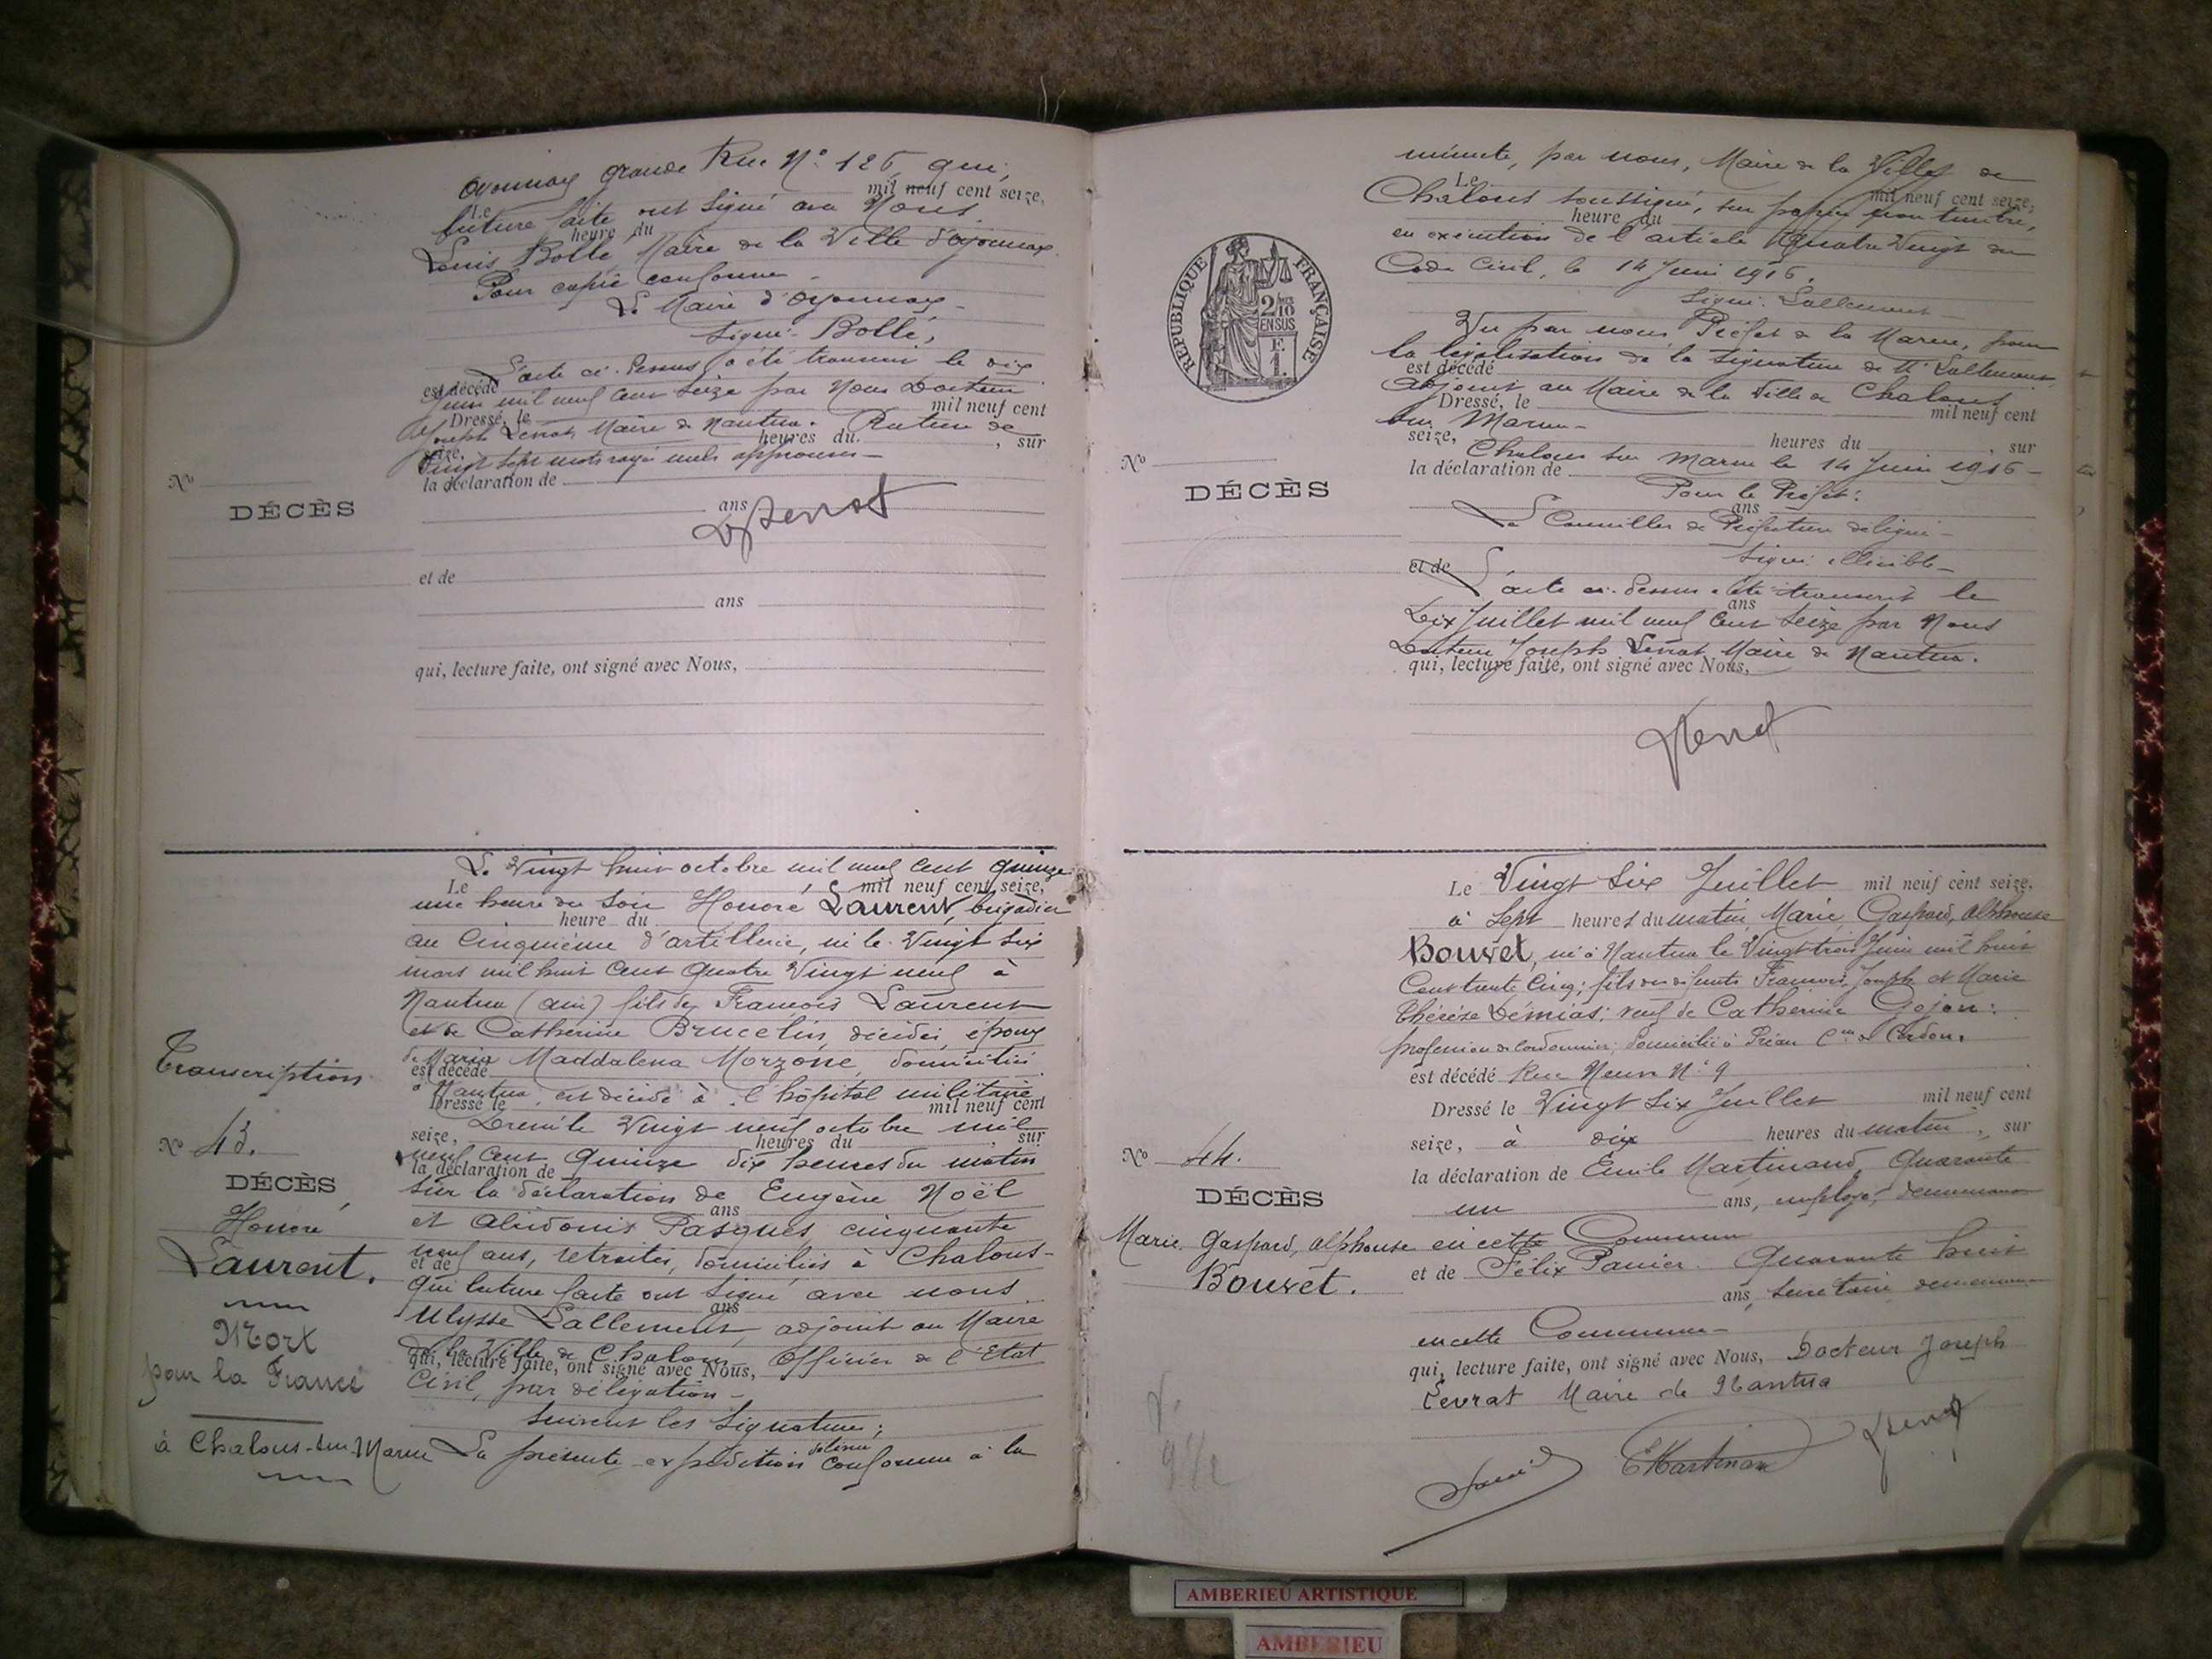 Oyonnax grande Rue No 126, qui,
Le mil neuf cent seize,
lecture faite ont signé avec Nous
heure du
Louis Bollé, Maire de la Ville d'Oyonnax.
Pour copie conforme -
Le Maire d'Oyonnax -
Signé: Bollé,
L'acte ci-dessus a été transcrit le dix
est décédé
Juin mil neuf cent seize par Nous Docteur
Dressé, le mil neuf cent
Joseph Levrat, Maire de Nantua.
seize, heures du , sur
vingt sept mots rayés nuls approuvés -
la déclaration de
ans
No
DÉCÈS
et de
ans
qui, lecture faite, ont signé avec Nous,
Transcription
No 43.
DÉCÈS
Honoré
Laurent.
Mort
pour la France
à Chalons-sur-Marne
Le Vingt huit octobre mil neuf cent quinze
Le mil neuf cent seize,
une heure du soir Honoré Laurent, brigadier
heure du
au Cinquième d'artillerie, né le Vingt six
mars mil huit cent quatre Vingt neuf à
Nantua (Ain) fils de François Laurent
et de Catherine Brucelin, décédés, époux
de Maria Maddalena Morzone, domicilié
est décédé
à Nantua, est décédé à l'hôpital militaire
Dressé le mil neuf cent
Dressé le Vingt neuf octobre mil
seize, heures du , sur
neuf cent quinze dix heures du matin
la déclaration de
sur la déclaration de Eugène Noël
ans
et Pasques, cinquante
neuf ans, retraités, domiciliés à Chalons-
et de
qui lecture faite ont signé avec nous
ans
Ulysse Lallement, adjoint au Maire
de la Ville de Chalons, Officier de l'Etat
qui, lecture faite, ont signé avec Nous,
Civil, par délégation -
Suivent les Signatures;
La présente expédition délivrée conforme à la
minute, par nous, Maire de la Ville de
Le mil neuf cent seize,
Chalons soussigné, sur papier non timbré,
heure du
en exécution de l'article Quatre Vingt du
Code Civil, le 14 Juin 1916.
Signé: Lallement -
RÉPUBLIQUE FRANÇAISE
2/10
EN SUS
F.
1.
Vu par nous Préfet de la Marne, pour
la légalisation de la signature de Mr Lallement
est décédé
adjoint au Maire de la Ville de Chalons
Dressé, le mil neuf cent
sur Marne -
seize, heures du , sur
Chalons sur Marne le 14 Juin 1916 -
la déclaration de
Pour le Préfet:
ans
Le Conseiller de Préfecture délégué -
Signé: illisible -
et de
L'acte ci-dessus a été transcrit le
ans
Dix Juillet mil neuf cent seize par Nous
Docteur Joseph Levrat Maire de Nantua.
qui, lecture faite, ont signé avec Nous,
No
DÉCÈS
No 44.
DÉCÈS
Marie, Gaspard, Alphonse
Bouvet.
Le Vingt Six Juillet mil neuf cent seize,
à Sept heures du matin, Marie, Gaspard, Alphonse
Bouvet, né à Nantua le Vingt trois Juin mil huit
Cent trente Cinq; fils des défunts François Joseph et Marie
Thérèse Démias; veuf de Catherine Gojon:
profession de Cordonnier, domicilié à Préau Cne de Cerdon.
est décédé Rue Neuve No 9
Dressé le Vingt Six Juillet mil neuf cent
seize, à dix heures du matin, sur
la déclaration de Emile Martinand, Quarante
un ans, employé, demeurant
en cette Commune
et de Félix Panier. Quarante huit
ans, Secrétaire demeurant
en cette Commune -
qui, lecture faite, ont signé avec Nous, Docteur Joseph
Levrat Maire de Nantua
EMartinand
AMBERIEU ARTISTIQUE
AMBERIEU